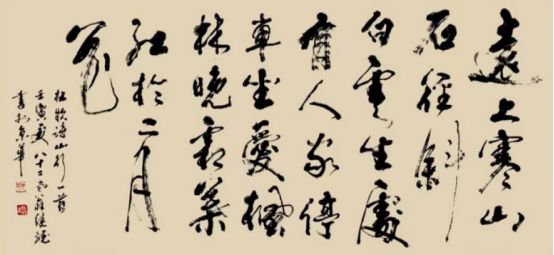 遠上寒山
石徑斜
白雲生處
有人家停
車坐愛楓
林晚霜葉
紅於二月
花
杜牧詩山行一首
壬寅夏八十二
書於京華